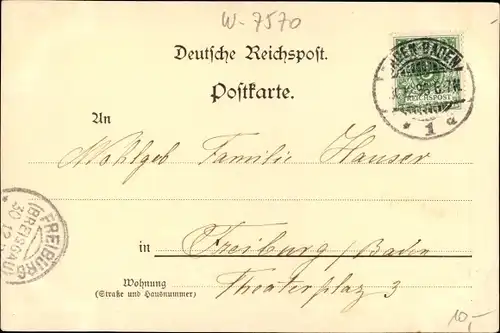 W-7570
Deutsche Reichspost.
Postkarte.
BADEN-BADEN
REICHSPOST
* 1 a
An
Wohlgeb Familie Hauser
FREIBURG
(BREISGAU)
30 12
in Freiburg/Baden
Wohnung
(Straße und Hausnummer)
Theaterplaz 3
10,-